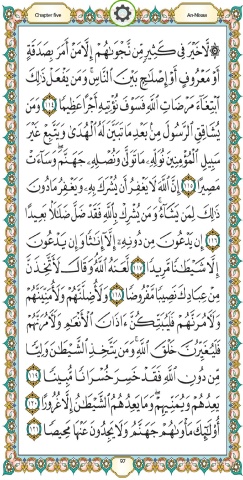 Chapter five
An-Nisaa
لَّا خَيْرَ فِي كَثِيرٍ مِّن نَّجْوَىٰهُمْ إِلَّا مَنْ أَمَرَ بِصَدَقَةٍ
أَوْ مَعْرُوفٍ أَوْ إِصْلَٰحٍۭ بَيْنَ ٱلنَّاسِ وَمَن يَفْعَلْ ذَٰلِكَ
ٱبْتِغَآءَ مَرْضَاتِ ٱللَّهِ فَسَوْفَ نُؤْتِيهِ أَجْرًا عَظِيمًا ١١٤ وَمَن
يُشَاقِقِ ٱلرَّسُولَ مِنۢ بَعْدِ مَا تَبَيَّنَ لَهُ ٱلْهُدَىٰ وَيَتَّبِعْ غَيْرَ
سَبِيلِ ٱلْمُؤْمِنِينَ نُوَلِّهِۦ مَا تَوَلَّىٰ وَنُصْلِهِۦ جَهَنَّمَ وَسَآءَتْ
مَصِيرًا ١١٥ إِنَّ ٱللَّهَ لَا يَغْفِرُ أَن يُشْرَكَ بِهِۦ وَيَغْفِرُ مَا دُونَ
ذَٰلِكَ لِمَن يَشَآءُ وَمَن يُشْرِكْ بِٱللَّهِ فَقَدْ ضَلَّ ضَلَٰلًۢا بَعِيدًا
١١٦ إِن يَدْعُونَ مِن دُونِهِۦٓ إِلَّآ إِنَٰثًا وَإِن يَدْعُونَ
إِلَّا شَيْطَٰنًا مَّرِيدًا ١١٧ لَّعَنَهُ ٱللَّهُ وَقَالَ لَأَتَّخِذَنَّ
مِنْ عِبَادِكَ نَصِيبًا مَّفْرُوضًا ١١٨ وَلَأُضِلَّنَّهُمْ وَلَأُمَنِّيَنَّهُمْ
وَلَءَامُرَنَّهُمْ فَلَيُبَتِّكُنَّ ءَاذَانَ ٱلْأَنْعَٰمِ وَلَءَامُرَنَّهُمْ
فَلَيُغَيِّرُنَّ خَلْقَ ٱللَّهِ وَمَن يَتَّخِذِ ٱلشَّيْطَٰنَ وَلِيًّا
مِّن دُونِ ٱللَّهِ فَقَدْ خَسِرَ خُسْرَانًا مُّبِينًا ١١٩
يَعِدُهُمْ وَيُمَنِّيهِمْ وَمَا يَعِدُهُمُ ٱلشَّيْطَٰنُ إِلَّا غُرُورًا ١٢٠
أُو۟لَٰٓئِكَ مَأْوَىٰهُمْ جَهَنَّمُ وَلَا يَجِدُونَ عَنْهَا مَحِيصًا ١٢١
97